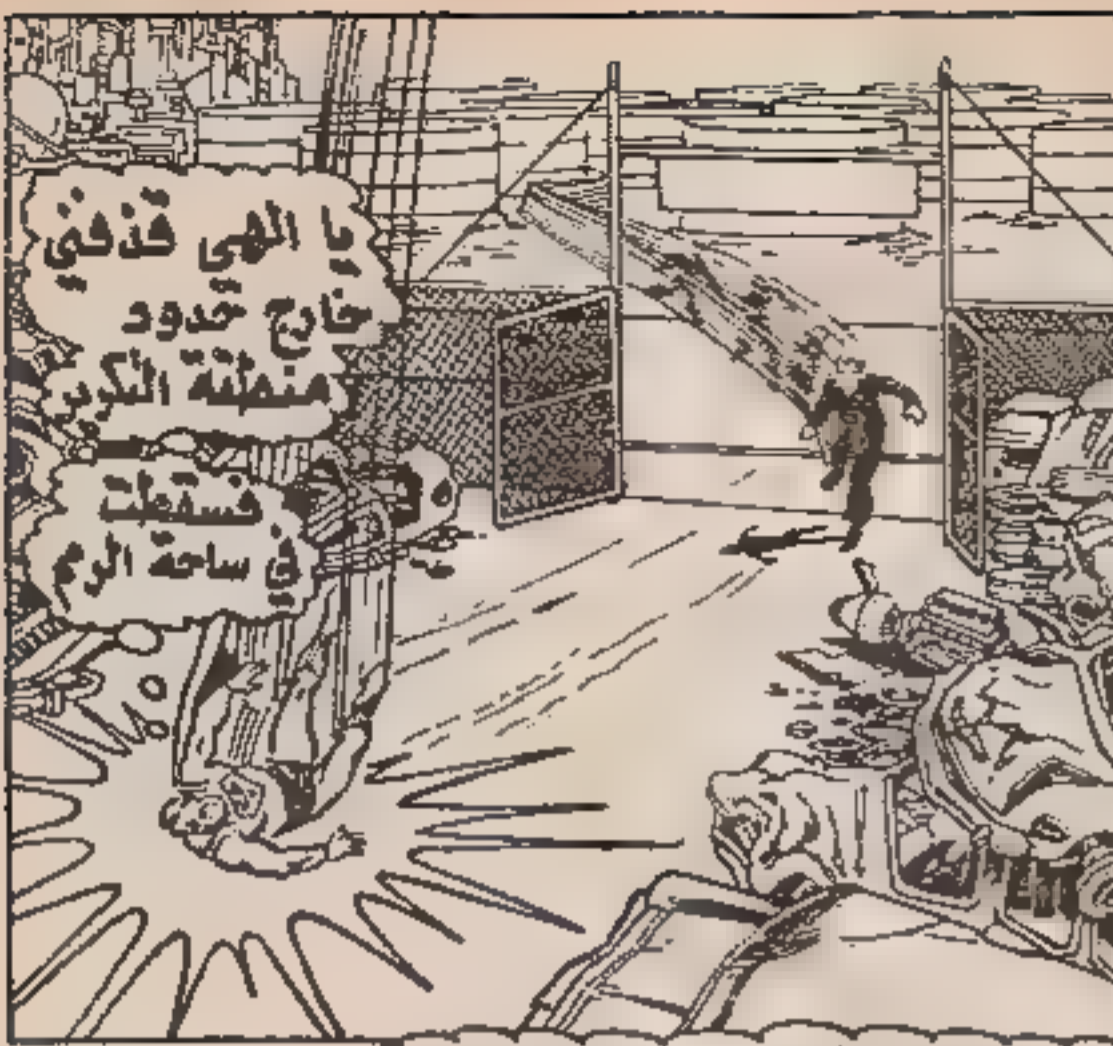 يا الهي قذفني
خارج حدود
منطقة التكرير
فسقطت
في ساحة الرم